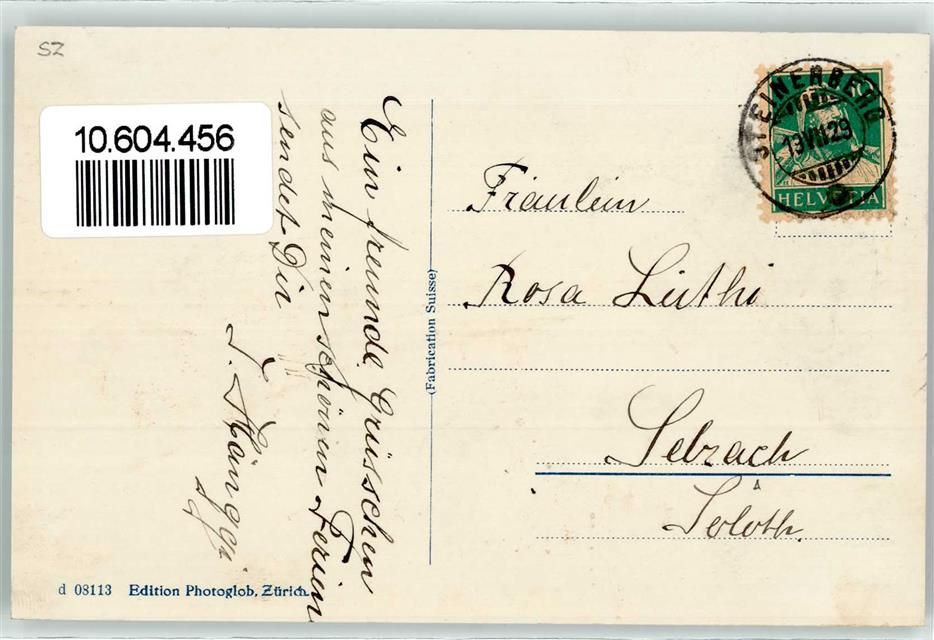 SZ
10.604.456
Ein freundl. Grüsschen
aus meinen schönen Ferien
sendet Dir
Hänggi
(Fabrication Suisse)
STEINERBERG
13 VII 29
10
HELVETIA
Fräulein
Rosa Lüthi
Selzach
Soloth.
d 08113 Edition Photoglob, Zürich.